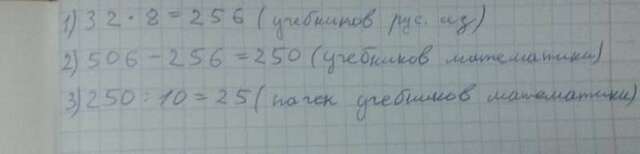 1) 32 · 8 = 256 (учебников рус. яз)
2) 506 - 256 = 250 (учебников математики)
3) 250 : 10 = 25 (пачек учебников математики)